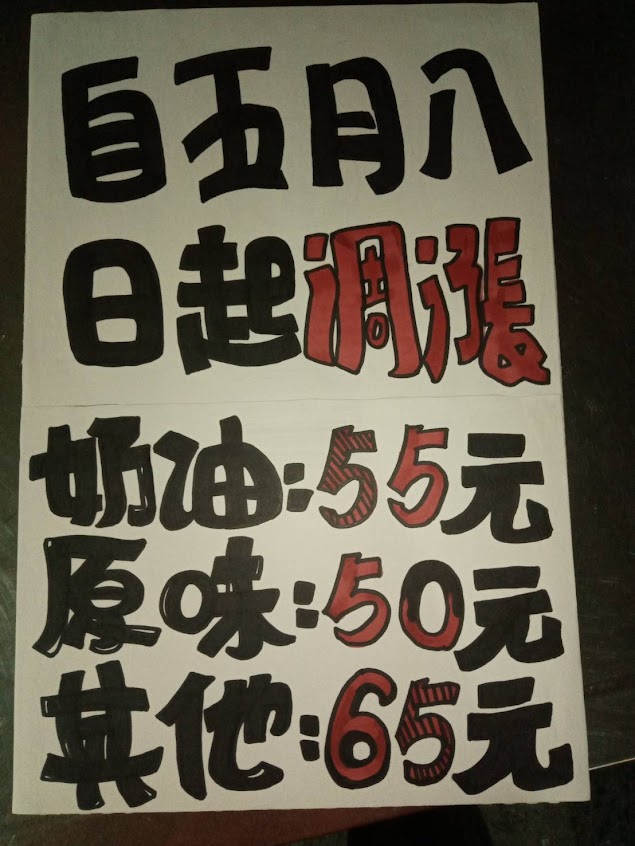 自五月八
日起調漲
奶油:55元
原味:50元
其他:65元